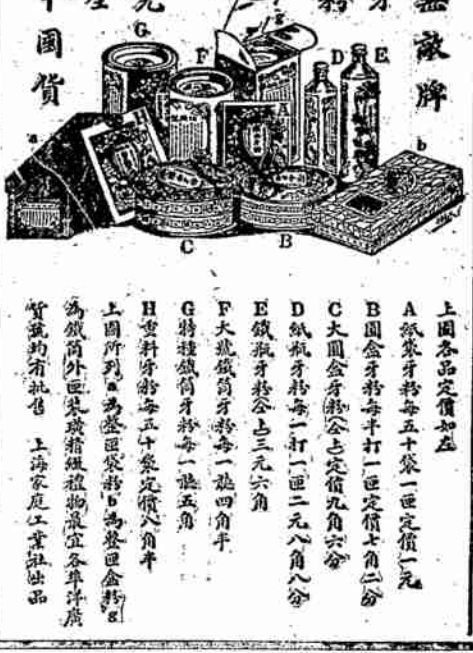 無敵牌
牙粉
國貨
G
F
g
A
D
E
a
b
C
B
上圖各品定價如左
A 紙袋牙粉每五十袋一匣定價一元
B 圓盒牙粉每半打一匣定價七角二分
C 大圓盒牙粉仝上定價九角六分
D 紙瓶牙粉每一打一匣二元八角八分
E 鐵瓶牙粉仝上三元六角
F 大號鐵筒牙粉每一聽四角半
G 特種鐵筒牙粉每一聽五角
H 重料牙粉每五十袋定價八角半
上圖所列a為整匣袋粉b為整匣盒粉g
為鐵筒外匣裝璜精緻禮物最宜各埠洋廣
貨號均有批售 上海家庭工業社出品